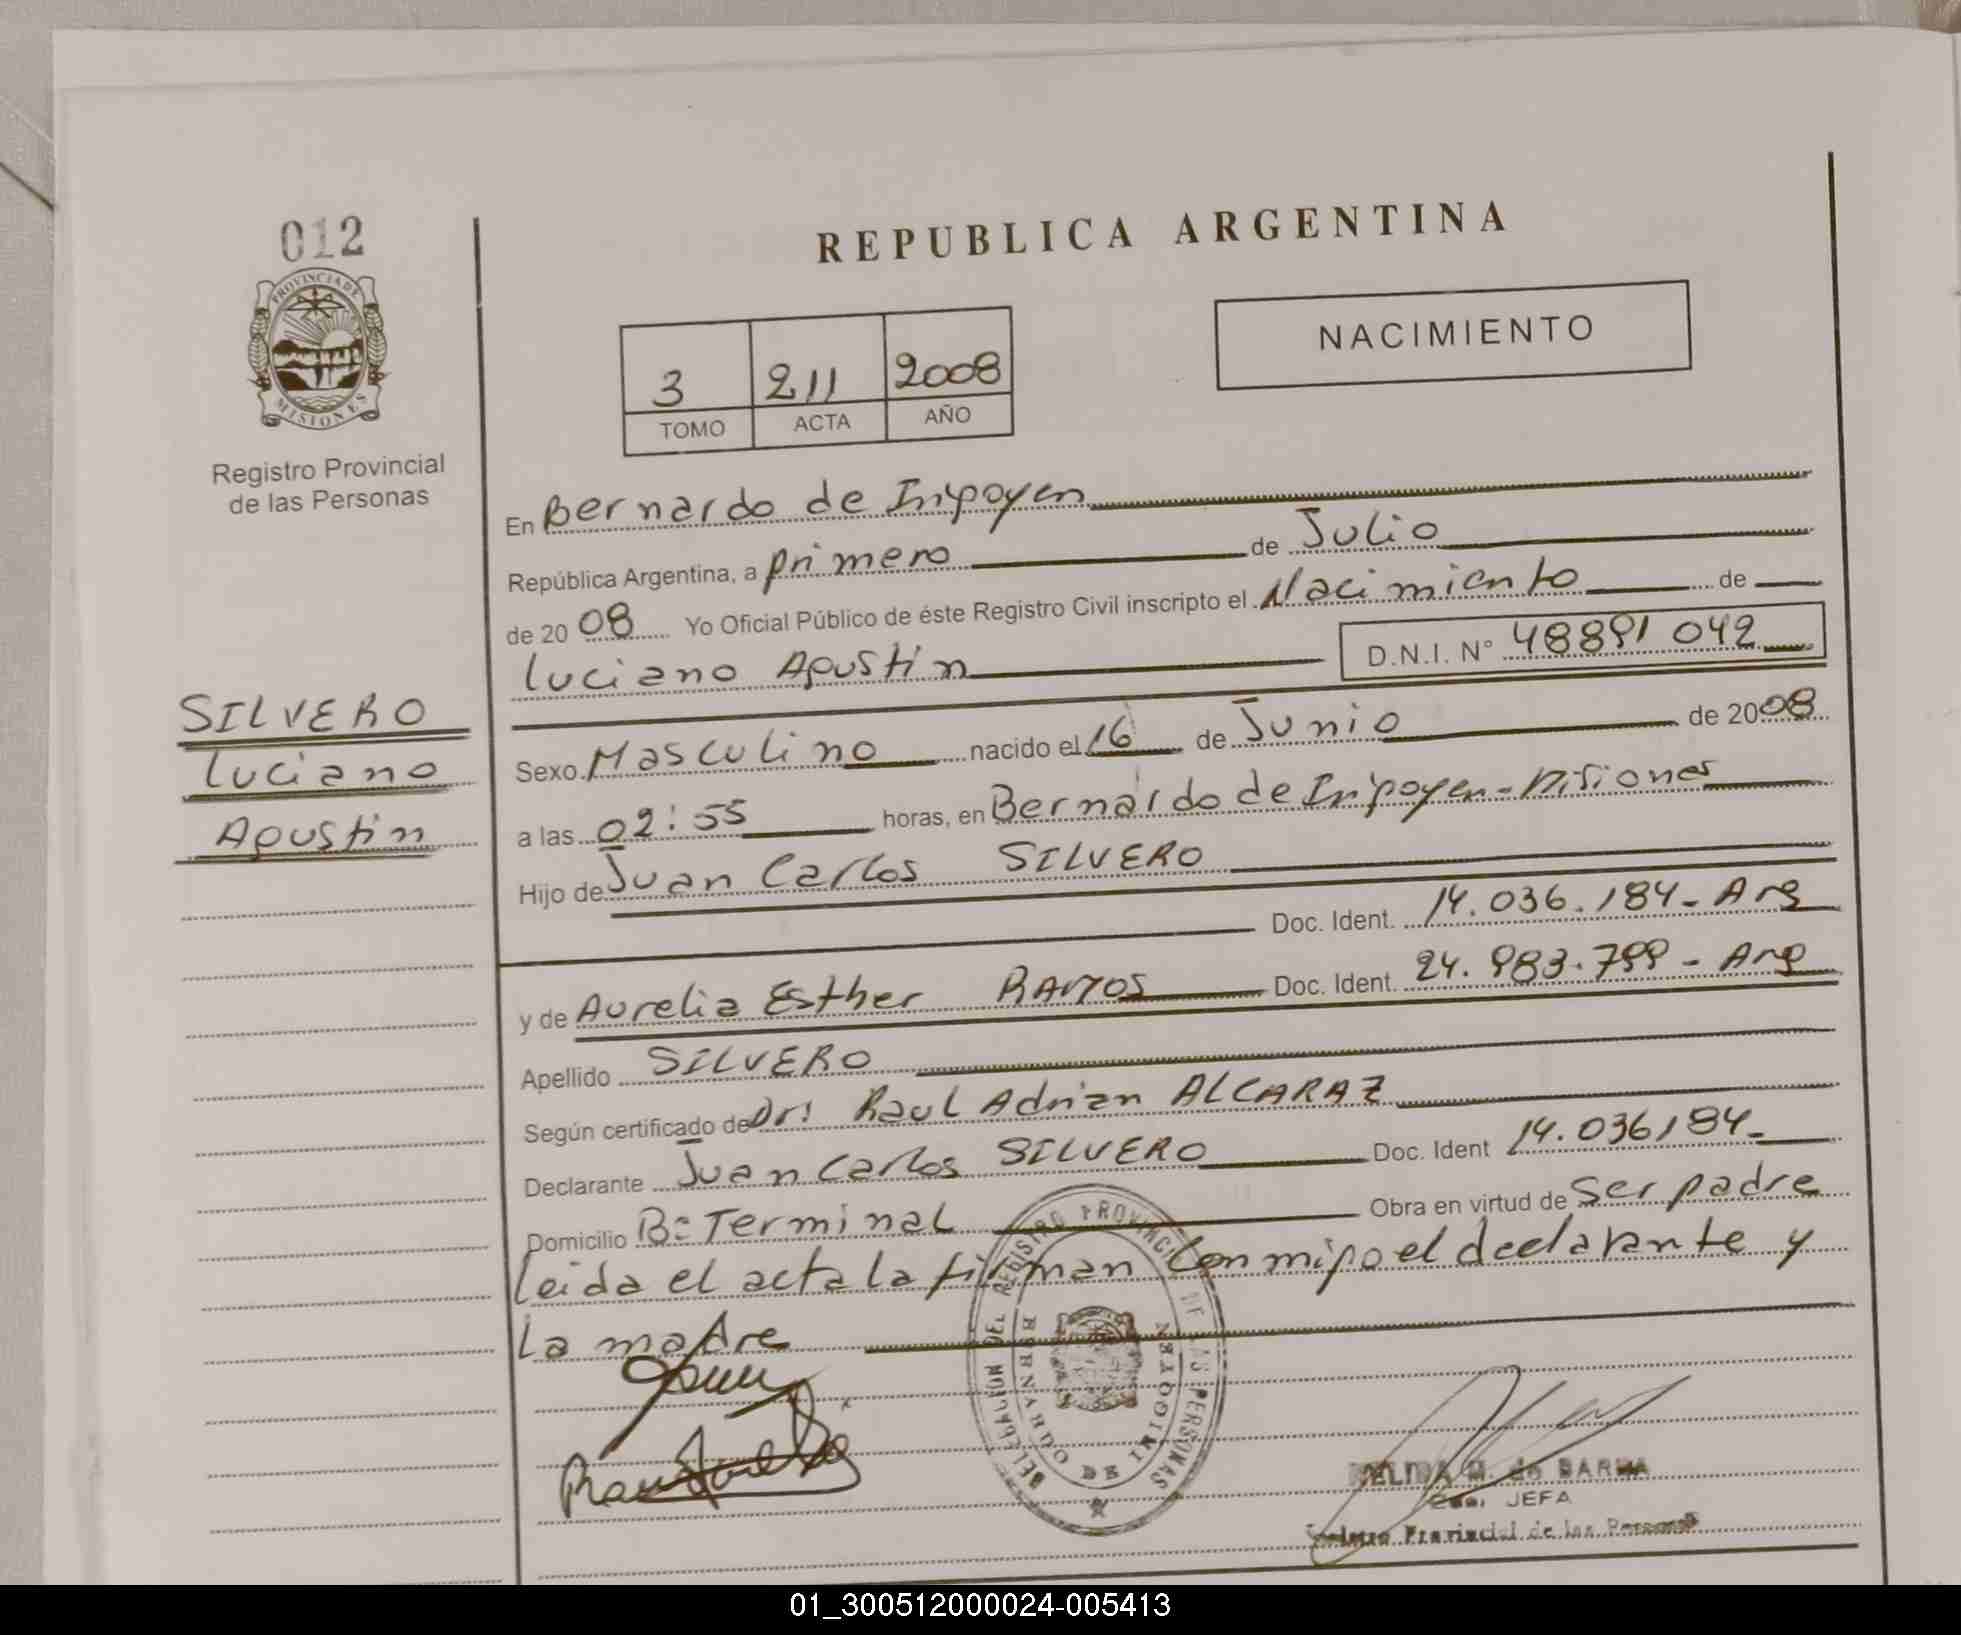 012
PROVINCIA DE
MISIONES
Registro Provincial
de las Personas
SILVERO
Luciano
Agustin
REPUBLICA ARGENTINA
NACIMIENTO
3 211 2008
TOMO ACTA AÑO
En Bernardo de Irigoyen
República Argentina, a primero de Julio
de 2008 Yo Oficial Público de éste Registro Civil inscripto el Nacimiento de
Luciano Agustin D.N.I. N° 48891 042
Sexo Masculino nacido el 16 de Junio de 2008
a las 02:55 horas, en Bernardo de Irigoyen - Misiones
Hijo de Juan Carlos SILVERO
Doc. Ident. 14.036.184- Arg
y de Aurelia Esther RAMOS Doc. Ident. 24.983.799 - Arg
Apellido SILVERO
Según certificado de Dr: Raul Adrian ALCARAZ
Declarante Juan Carlos SILVERO Doc. Ident 14.036184-
Domicilio B: Terminal Obra en virtud de Ser padre
Leida el acta la firman Conmigo el declarante y
La madre
REGISTRO PROVINCIAL DE LAS PERSONAS
BERNARDO DE IRIGOYEN
M. de
JEFA
Provincial de las Personas
01_300512000024-005413